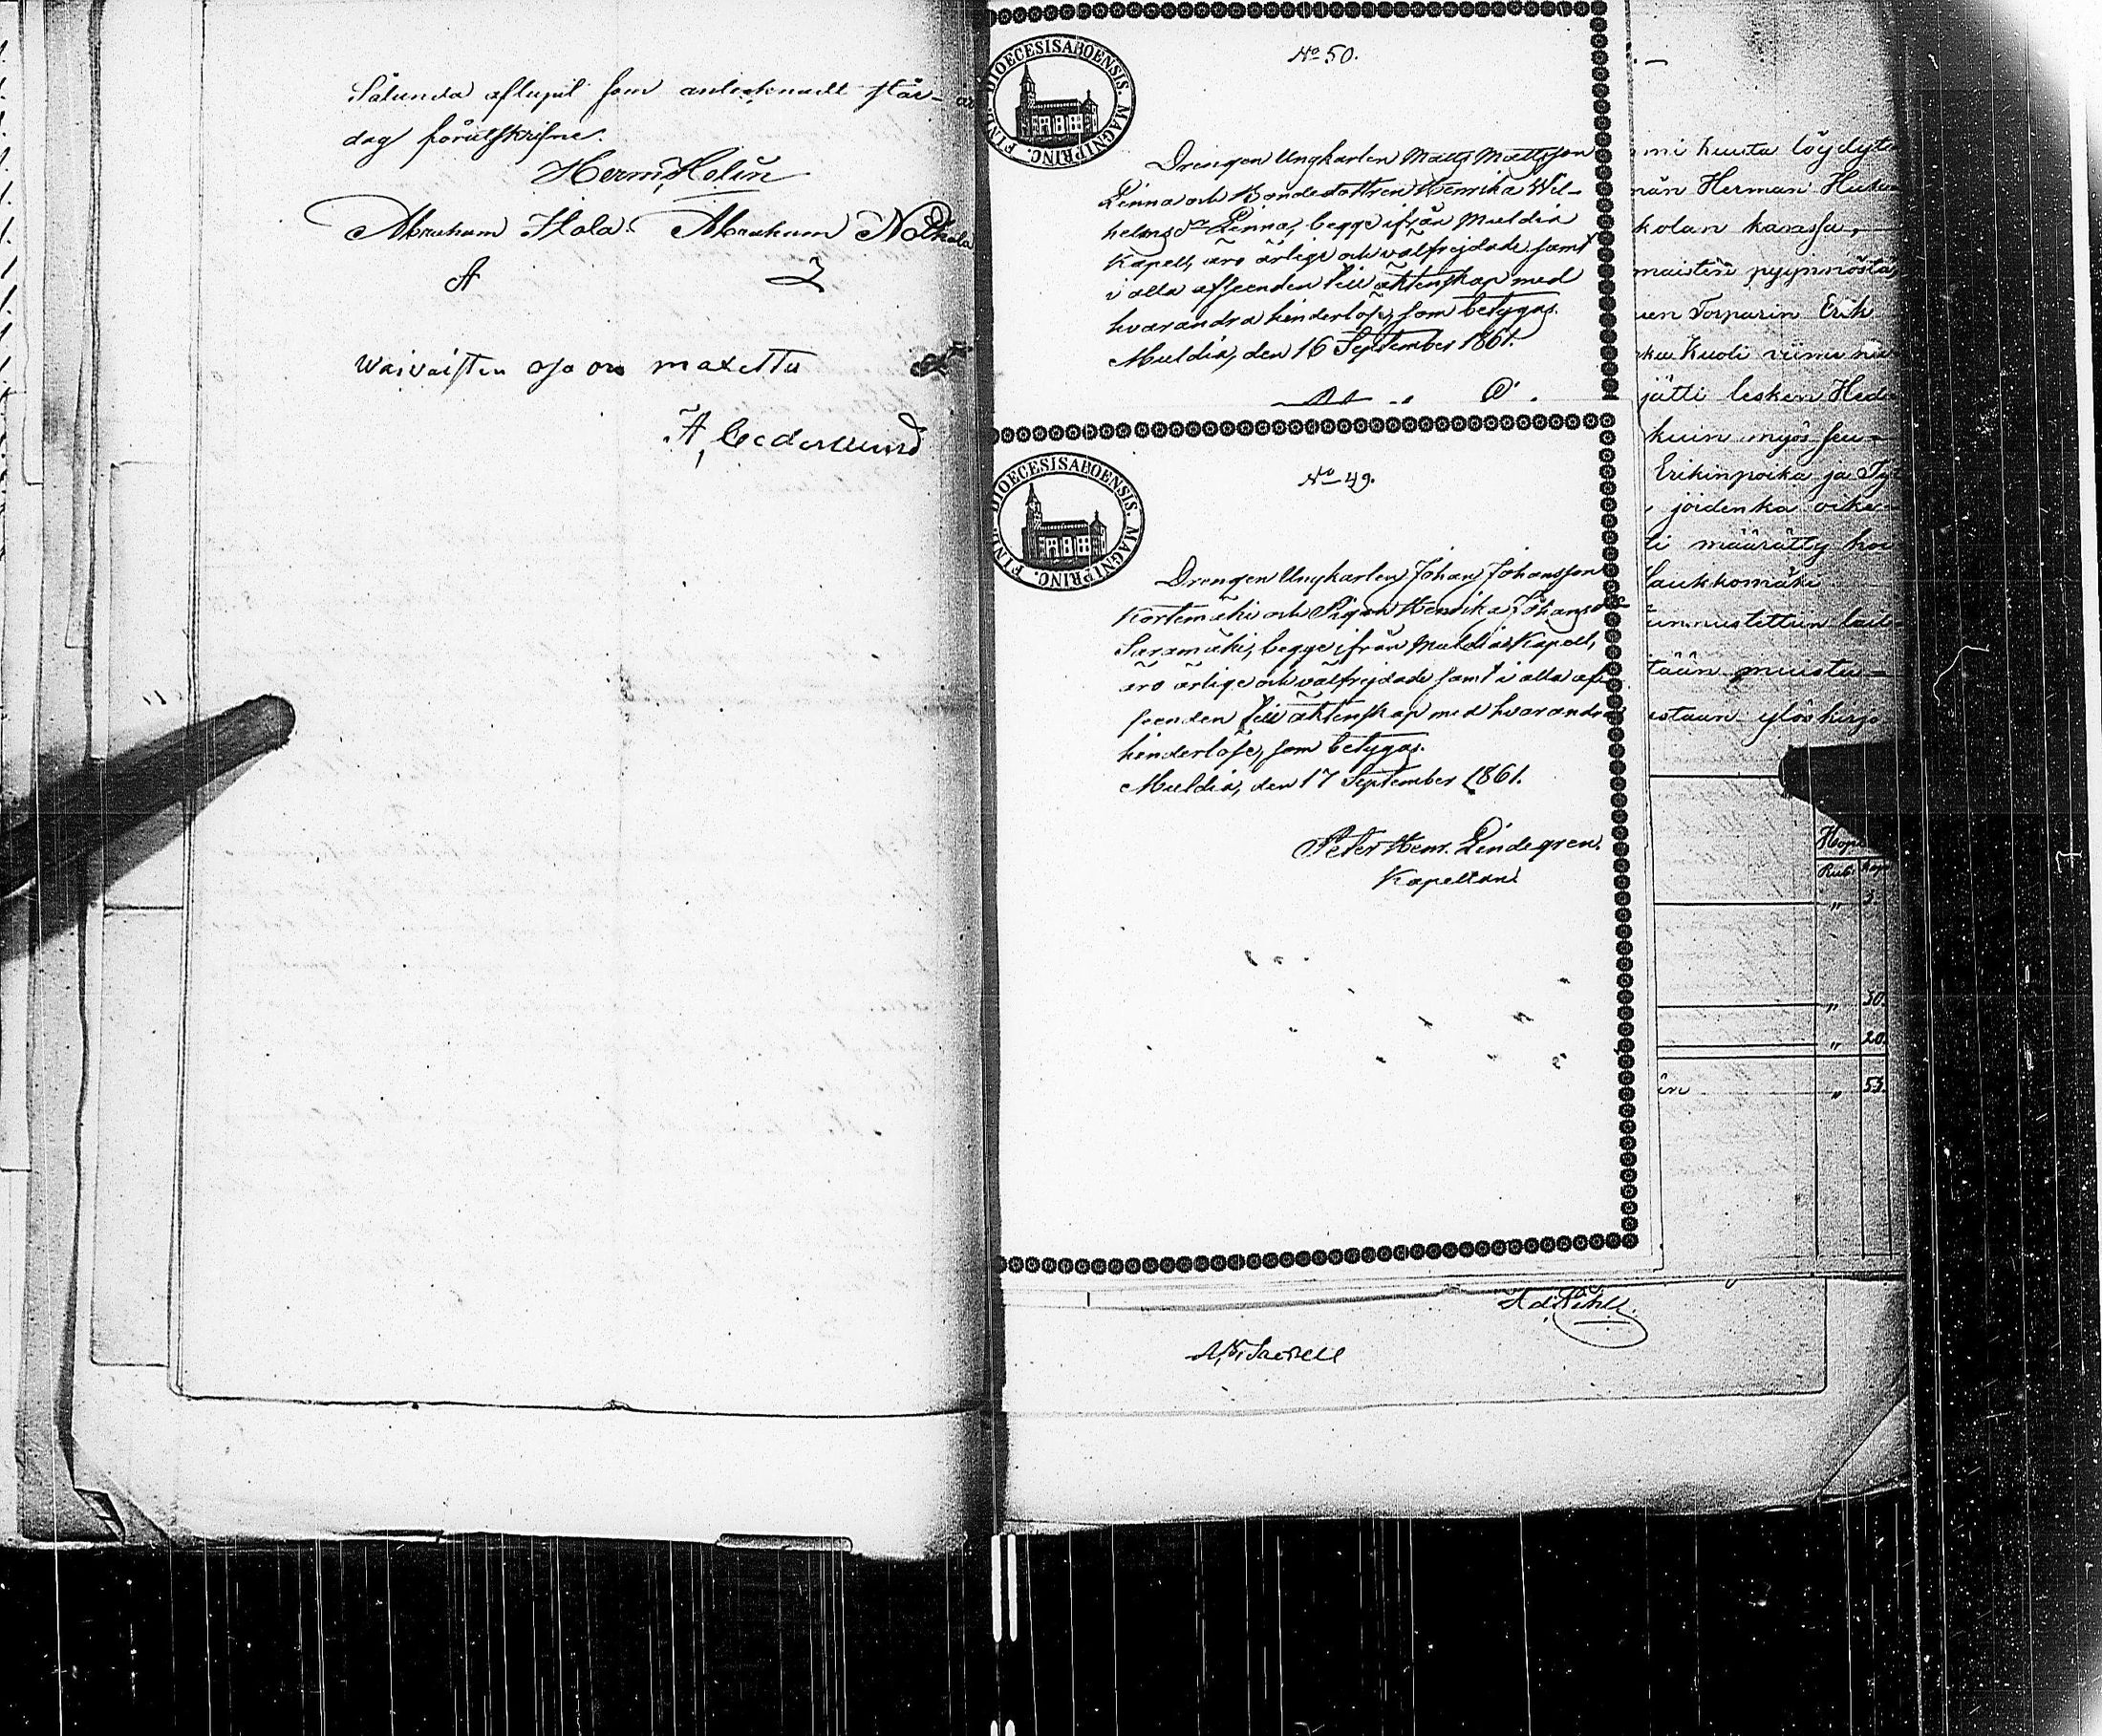 Sålunda aflupit som antecknadt står
dag förutskrifne.
Herm: Helin
Abraham Hola Abraham
A
Waivaisten osa on maxettu
A, Cederlund
No 50.
DIOECESIS ABOENSIS. MAGNI PRINC. FINL.
Drengen Ungkarlen Matts Mattsson
Linna och Bondedottren Henrika Wil-
helmsdr Linna, begge ifrån Muldia
Kapell, äro ärlige och välfrejdade samt
i alla afseenden till äktenskap med
hvarandra hinderlöse, som betygas.
Muldia, den 16 September 1861.
No 49.
DIOECESIS ABOENSIS. MAGNI PRINC. FINL.
Drengen Ungkarlen Johan Johansson
Kortemäki och Pigan Henrika Johansdr
Saramäki, begge ifrån Muldia Kapell,
äro ärlige och välfrejdade samt i alla af-
seenden till äktenskap med hvarandra
hinderlöse, som betygas.
Muldia, den 17 September 1861.
Peter Henr. Lindegren.
Kapellan.
mi kuuta löydyt
män Herman
kolan kanssa,
maisten pyynnöstä,
ien Torparin Erik
ku Kuoli viime
jätti lesken Hed
kuin myös seu-
Erikinpoika ja
joidenka oike-
ti määrätty
Laukkomäki
tään muistu-
ustaan ylöskirjo
Rub. Kop.
" 3.
" 50.
" 20.
" 53.